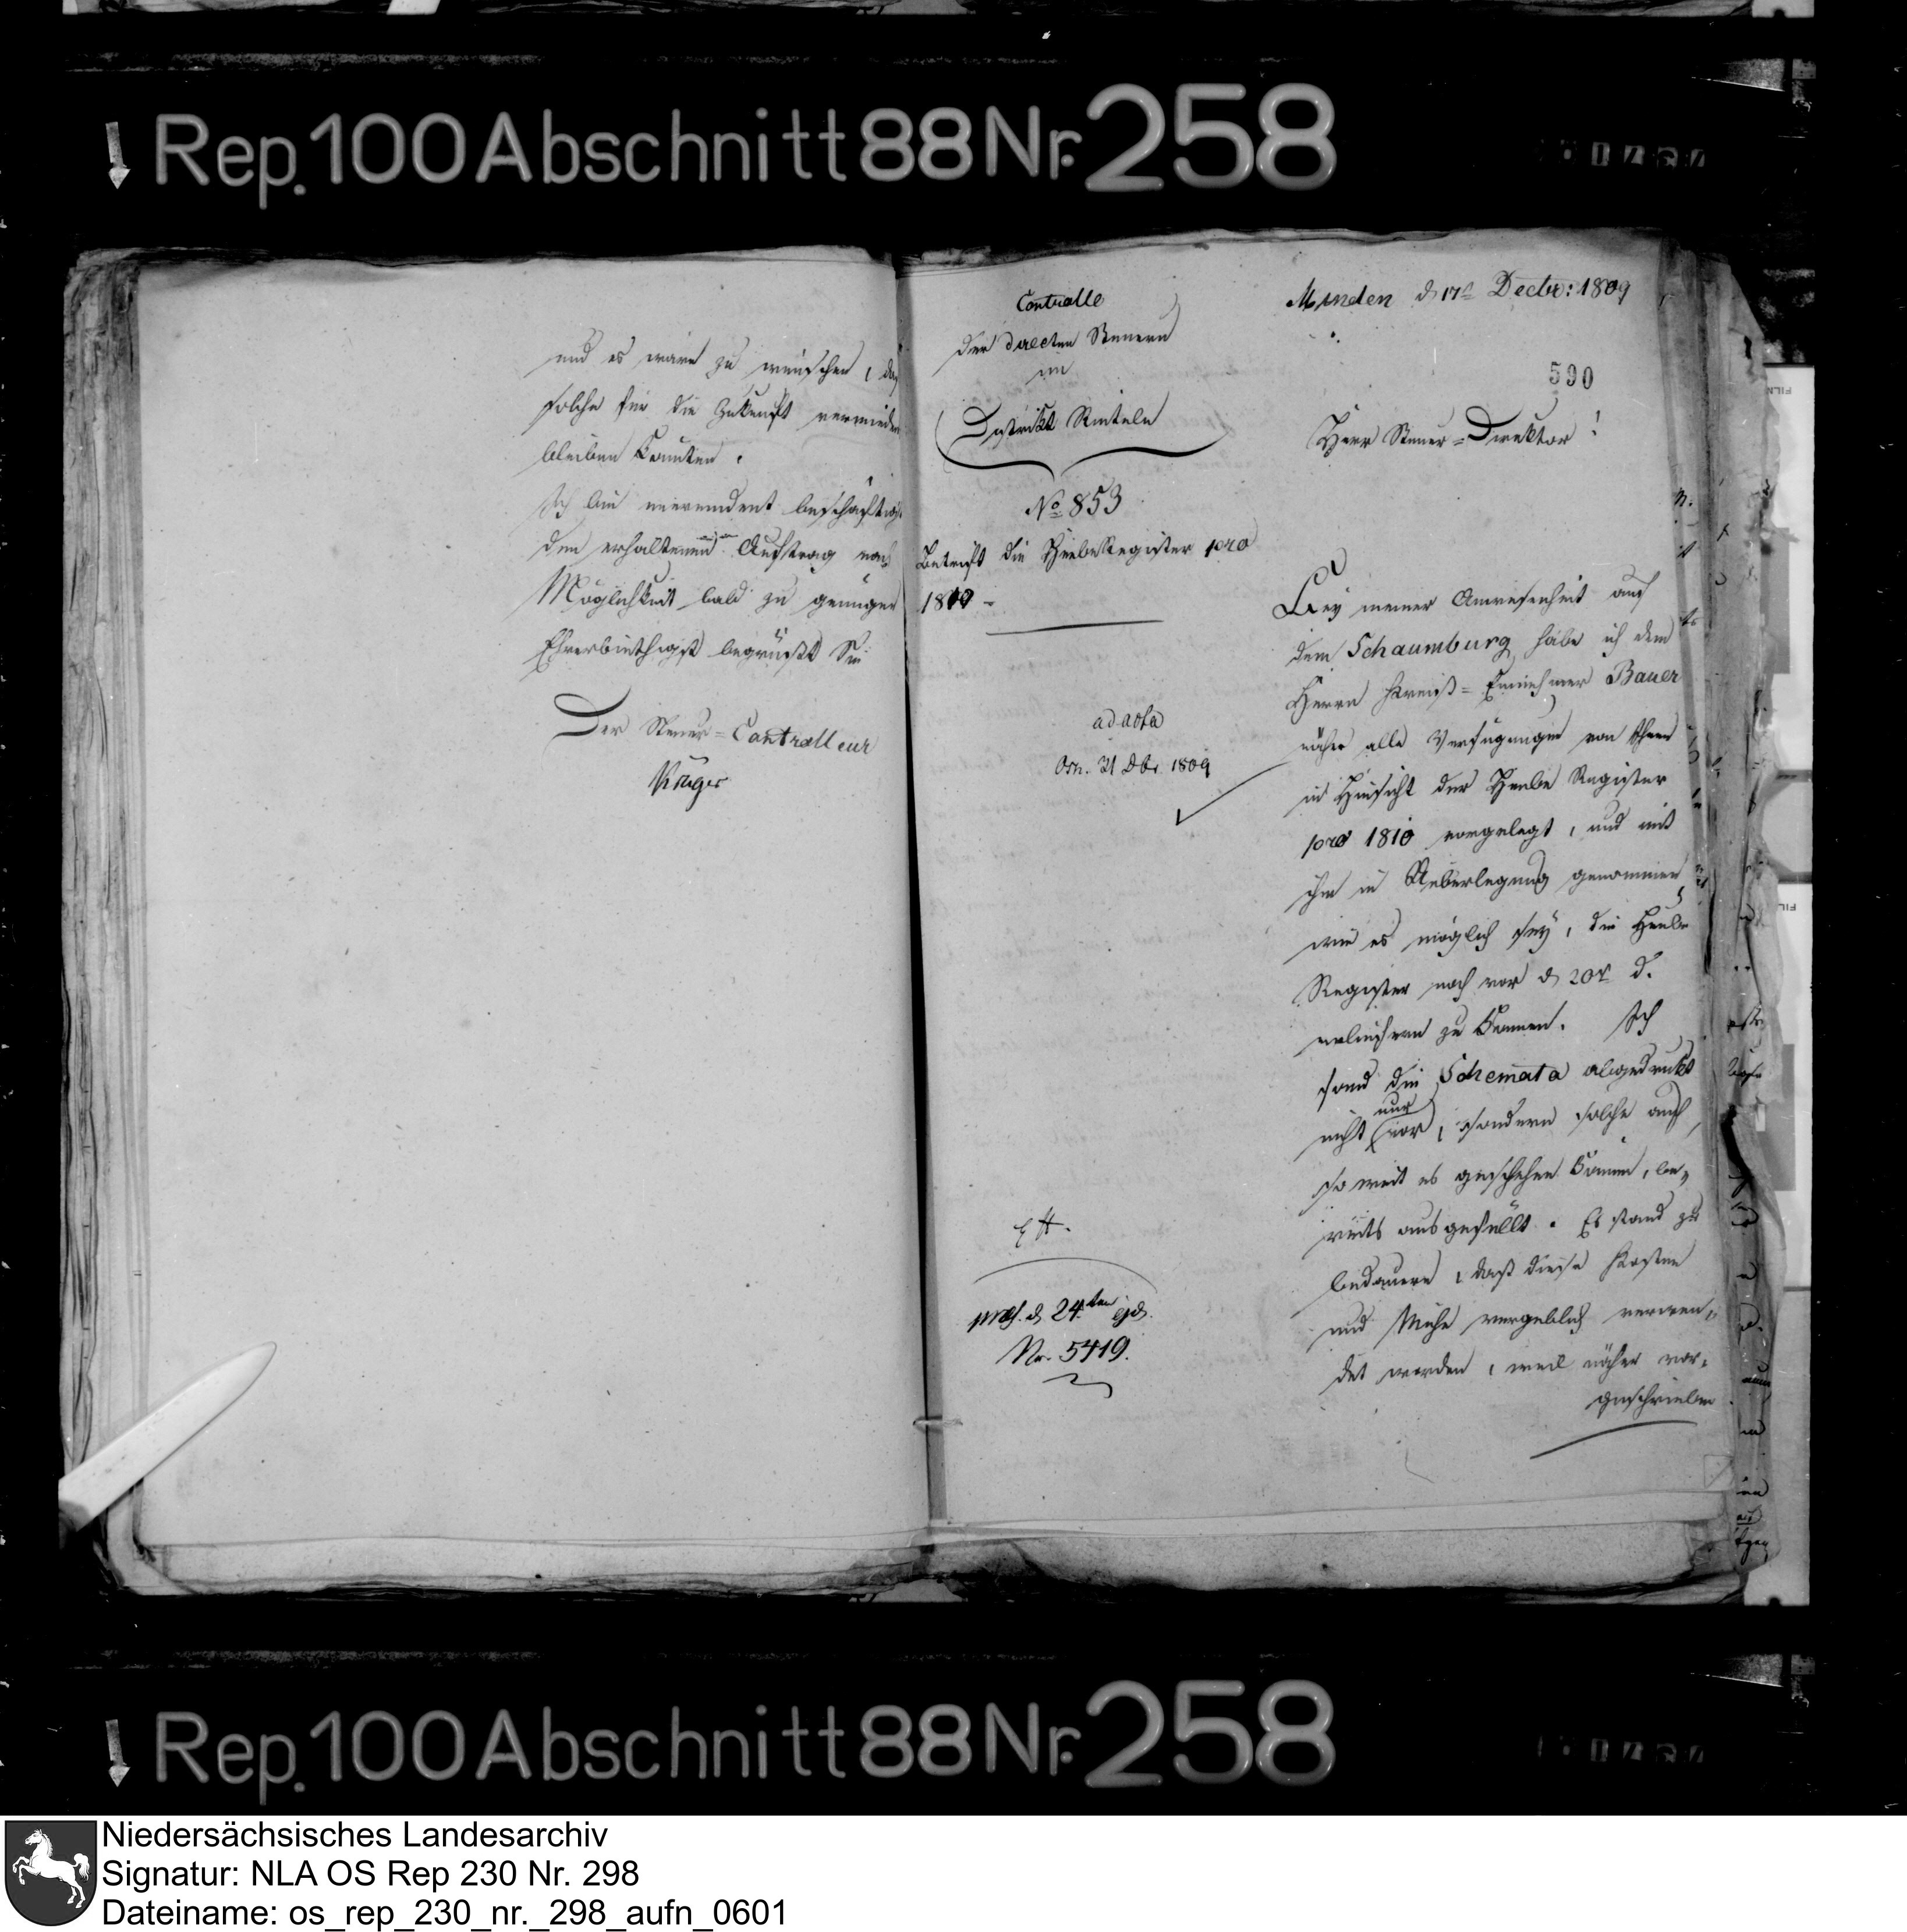 Rep. 100 Abschnitt 88 Nr. 258
und es wäre zu wünschen, daß
solche für die Zukunft vermieden
bleiben könnten.
Ich bin unverwandt beschäftigt
den erhaltenen Auftrag nach
Möglichkeit bald zu genügen
Ehrerbiethigst begrüßt Sie
Der Steuer-Controlleur
Krüger
Controlle
der directen Steuern
im
Distrikt Rinteln
No 853
Betrift die HebeRegister pro
1810 -
ad acta
Osn. 31 Dbr. 1809
d 24ten ejd.
Nr. 5419.
Minden d 17t Decbr: 1809
590
Herr Steuer-Direktor!
Bey meiner Anwesenheit auf
dem Schaumburg habe ich dem
Herrn Kreiß-Einnehmer Bauer
näher alle Verfügungen von Ihnen
in Hinsicht der Hebe Register
pro 1810 vorgelegt, und mit
ihm in Ueberlegung genommen
wie es möglich sey, die Hebe
Register noch vor d 20t d.
zu können. Ich
fand die Schemata abgedruckt
nicht nur vor, sondern solche auch,
so weit es geschehen können, be-
reits ausgefüllt. Es stand zu
bedauern, daß diese Kosten
und Mühe vergeblich verwen-
det worden, weil näher vor-
geschrieben
Rep. 100 Abschnitt 88 Nr. 258
Niedersächsisches Landesarchiv
Signatur: NLA OS Rep 230 Nr. 298
Dateiname: os_rep_230_nr._298_aufn_0601